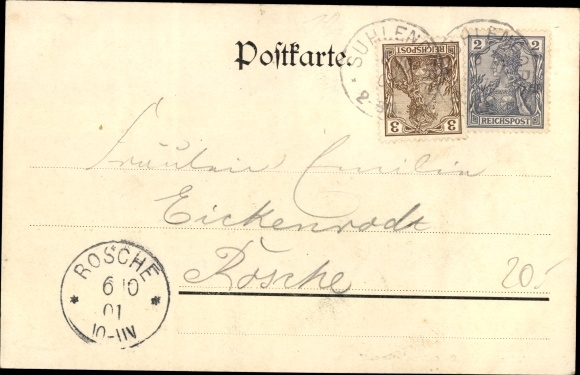 Postkarte
SUHLEN
2
2 2
REICHSPOST
REICHSPOST
3 3
Fräulein Emilie
Eickenrodt
Rosche
20.-
* ROSCHE *
6 10
01
10-11N